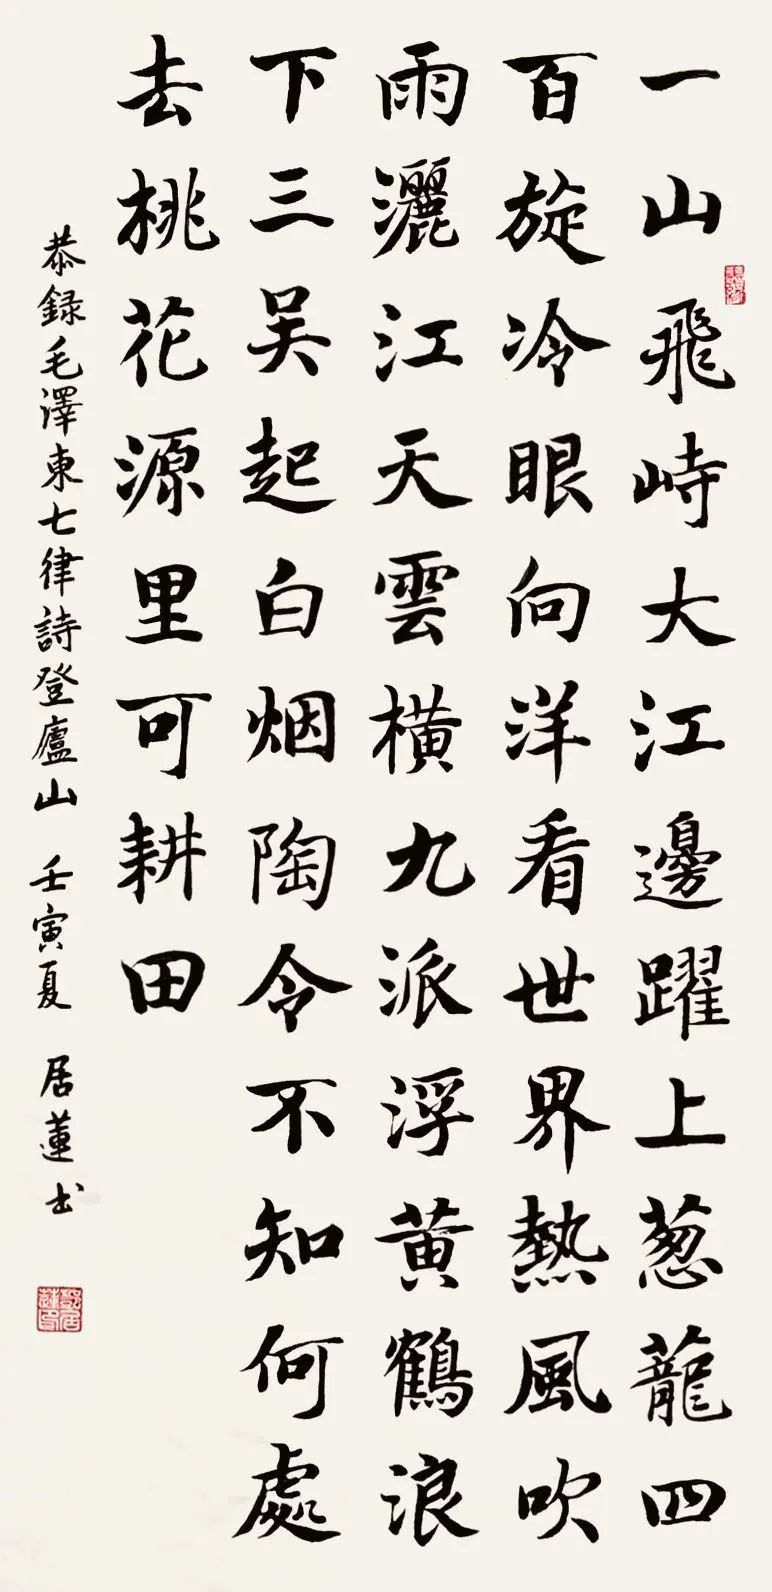 一山飛峙大江邊躍上蔥蘢四
百旋冷眼向洋看世界熱風吹
雨灑江天雲橫九派浮黃鶴浪
下三吴起白烟陶令不知何處
去桃花源里可耕田
恭録毛澤東七律詩登廬山 壬寅夏 居蓮书